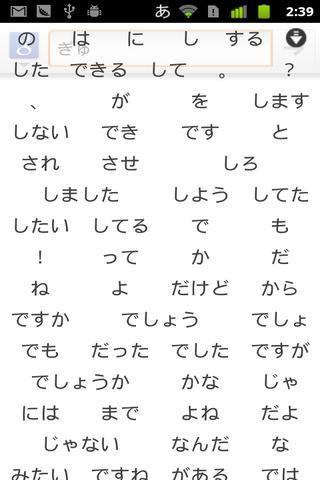 あ 2:39
ぎゅ
の は に し する
した できる して 。 ?
、 が を します
しない でき です と
され させ しろ
しました しよう してた
したい してる で も
! って か だ
ね よ だけど から
ですか でしょう でしょ
でも だった でした ですが
でしょうか かな じゃ
には まで よね だよ
じゃない なんだ な
みたい ですね がある では